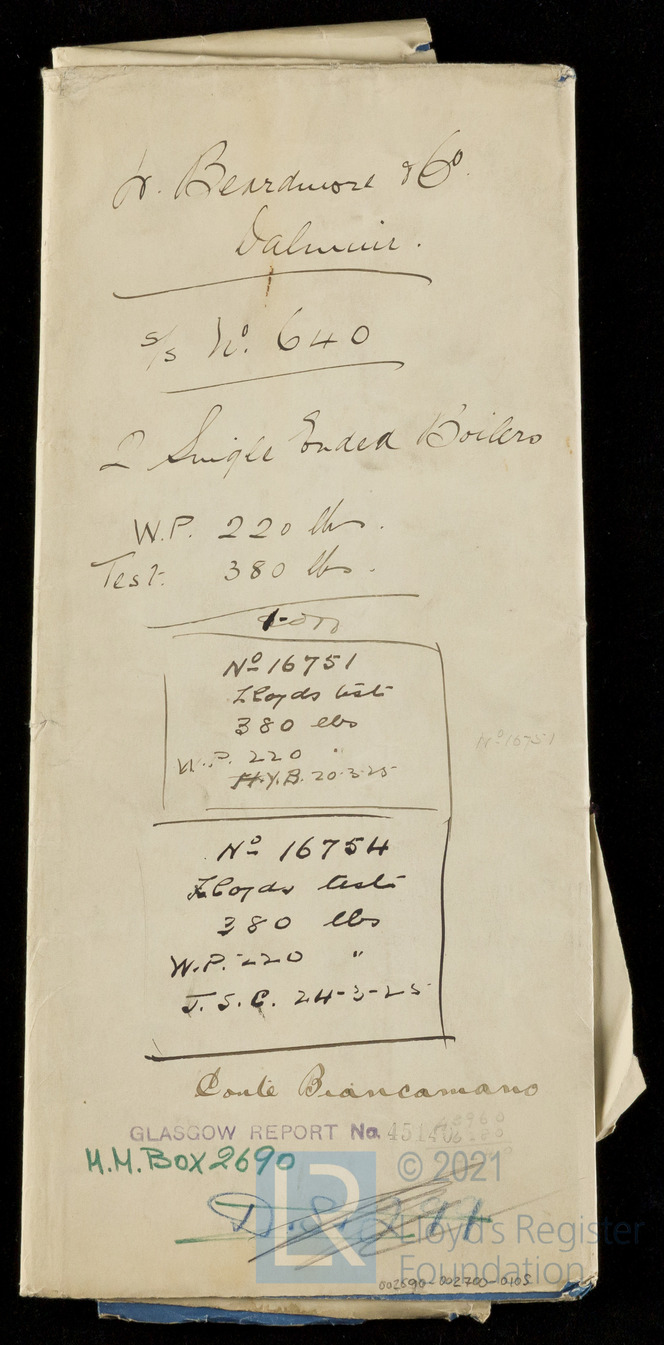 W. Beardmore & Co.
Dalmuir.
S/S No. 640
2 Single Ended Boilers
W.P. 220 lbs.
Test. 380 lbs.
No 16751
Lloyds test
380 lbs
W.P. 220 "
H.Y.B. 20-3-25
No 16751
No 16754
Lloyds test
380 lbs
W.P. 220 "
J.S.C. 24-3-25
Conte Biancamano
GLASGOW REPORT No. 45140
M.M. Box 2690
LR
© 2021
Lloyd's Register
Foundation
002690-002700-0105